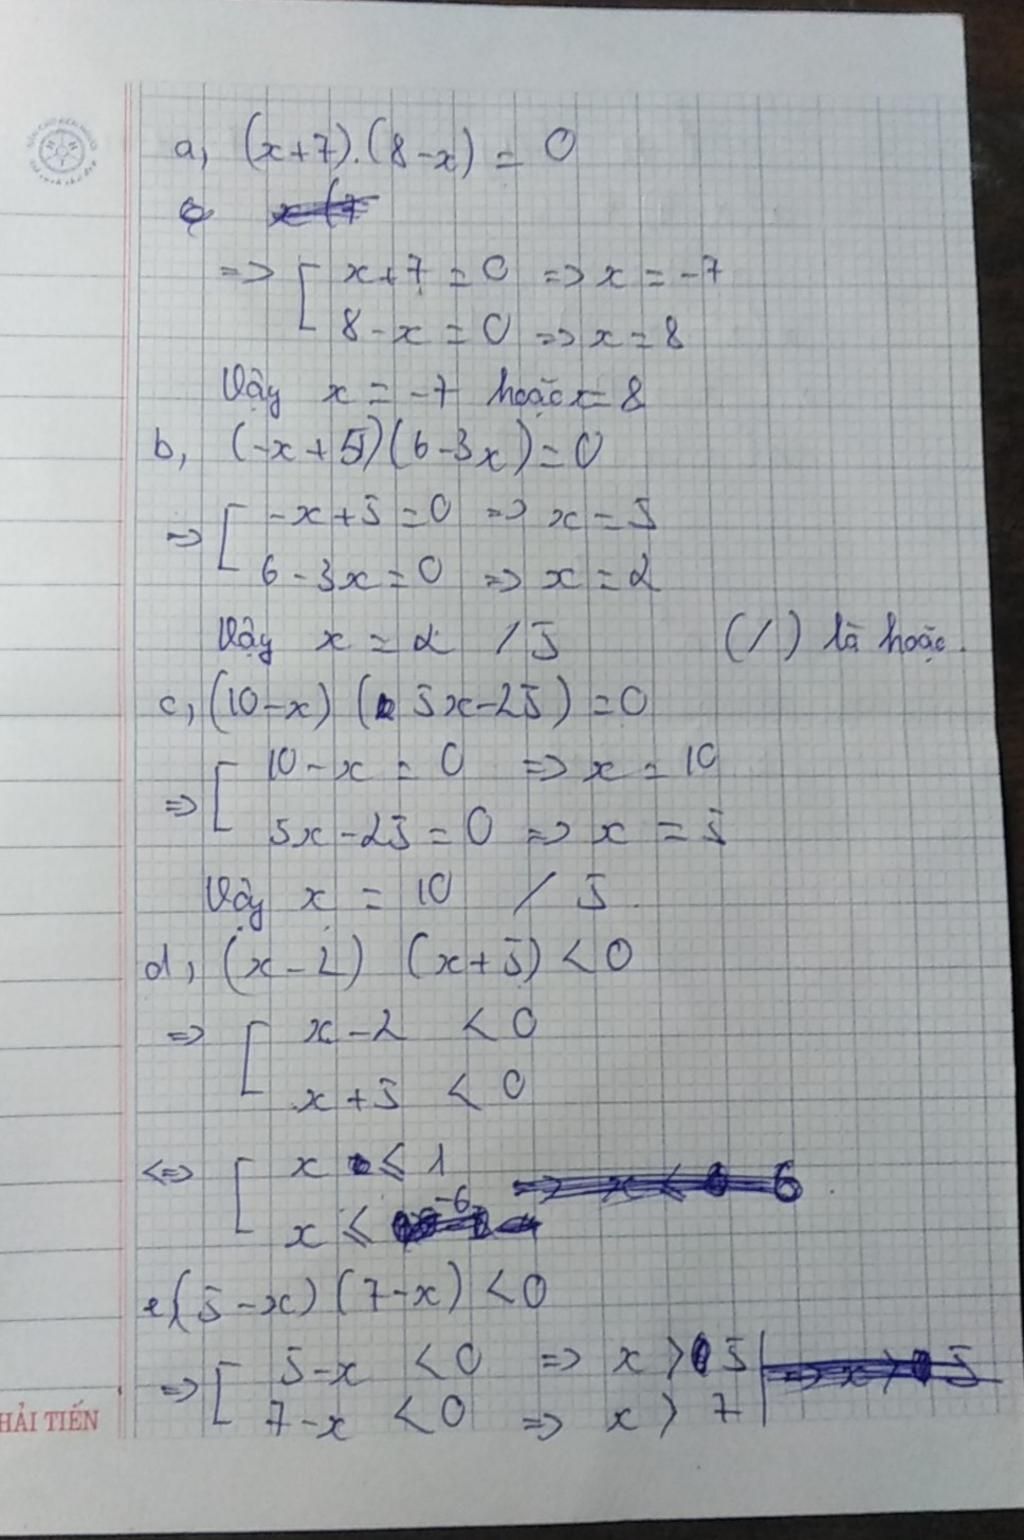 a, (x+7).(8-x) = 0
=> [ x+7 = 0 => x = -7
8-x = 0 => x = 8
Vậy x = -7 hoặc x = 8
b, (-x+5)(6-3x) = 0
=> [ -x+5 = 0 => x = 5
6-3x = 0 => x = 2
Vậy x = 2 / 5 (/) là hoặc.
c, (10-x) (5x-25) = 0
=> [ 10-x = 0 => x = 10
5x-25 = 0 => x = 5
Vậy x = 10 / 5.
d, (x-2) (x+5) < 0
=> [ x-2 < 0
x+5 < 0
<=> [ x ≤ 1
x ≤ -6
e, (5-x) (7-x) < 0
=> [ 5-x < 0 => x > 5
7-x < 0 => x > 7
HẢI TIẾN